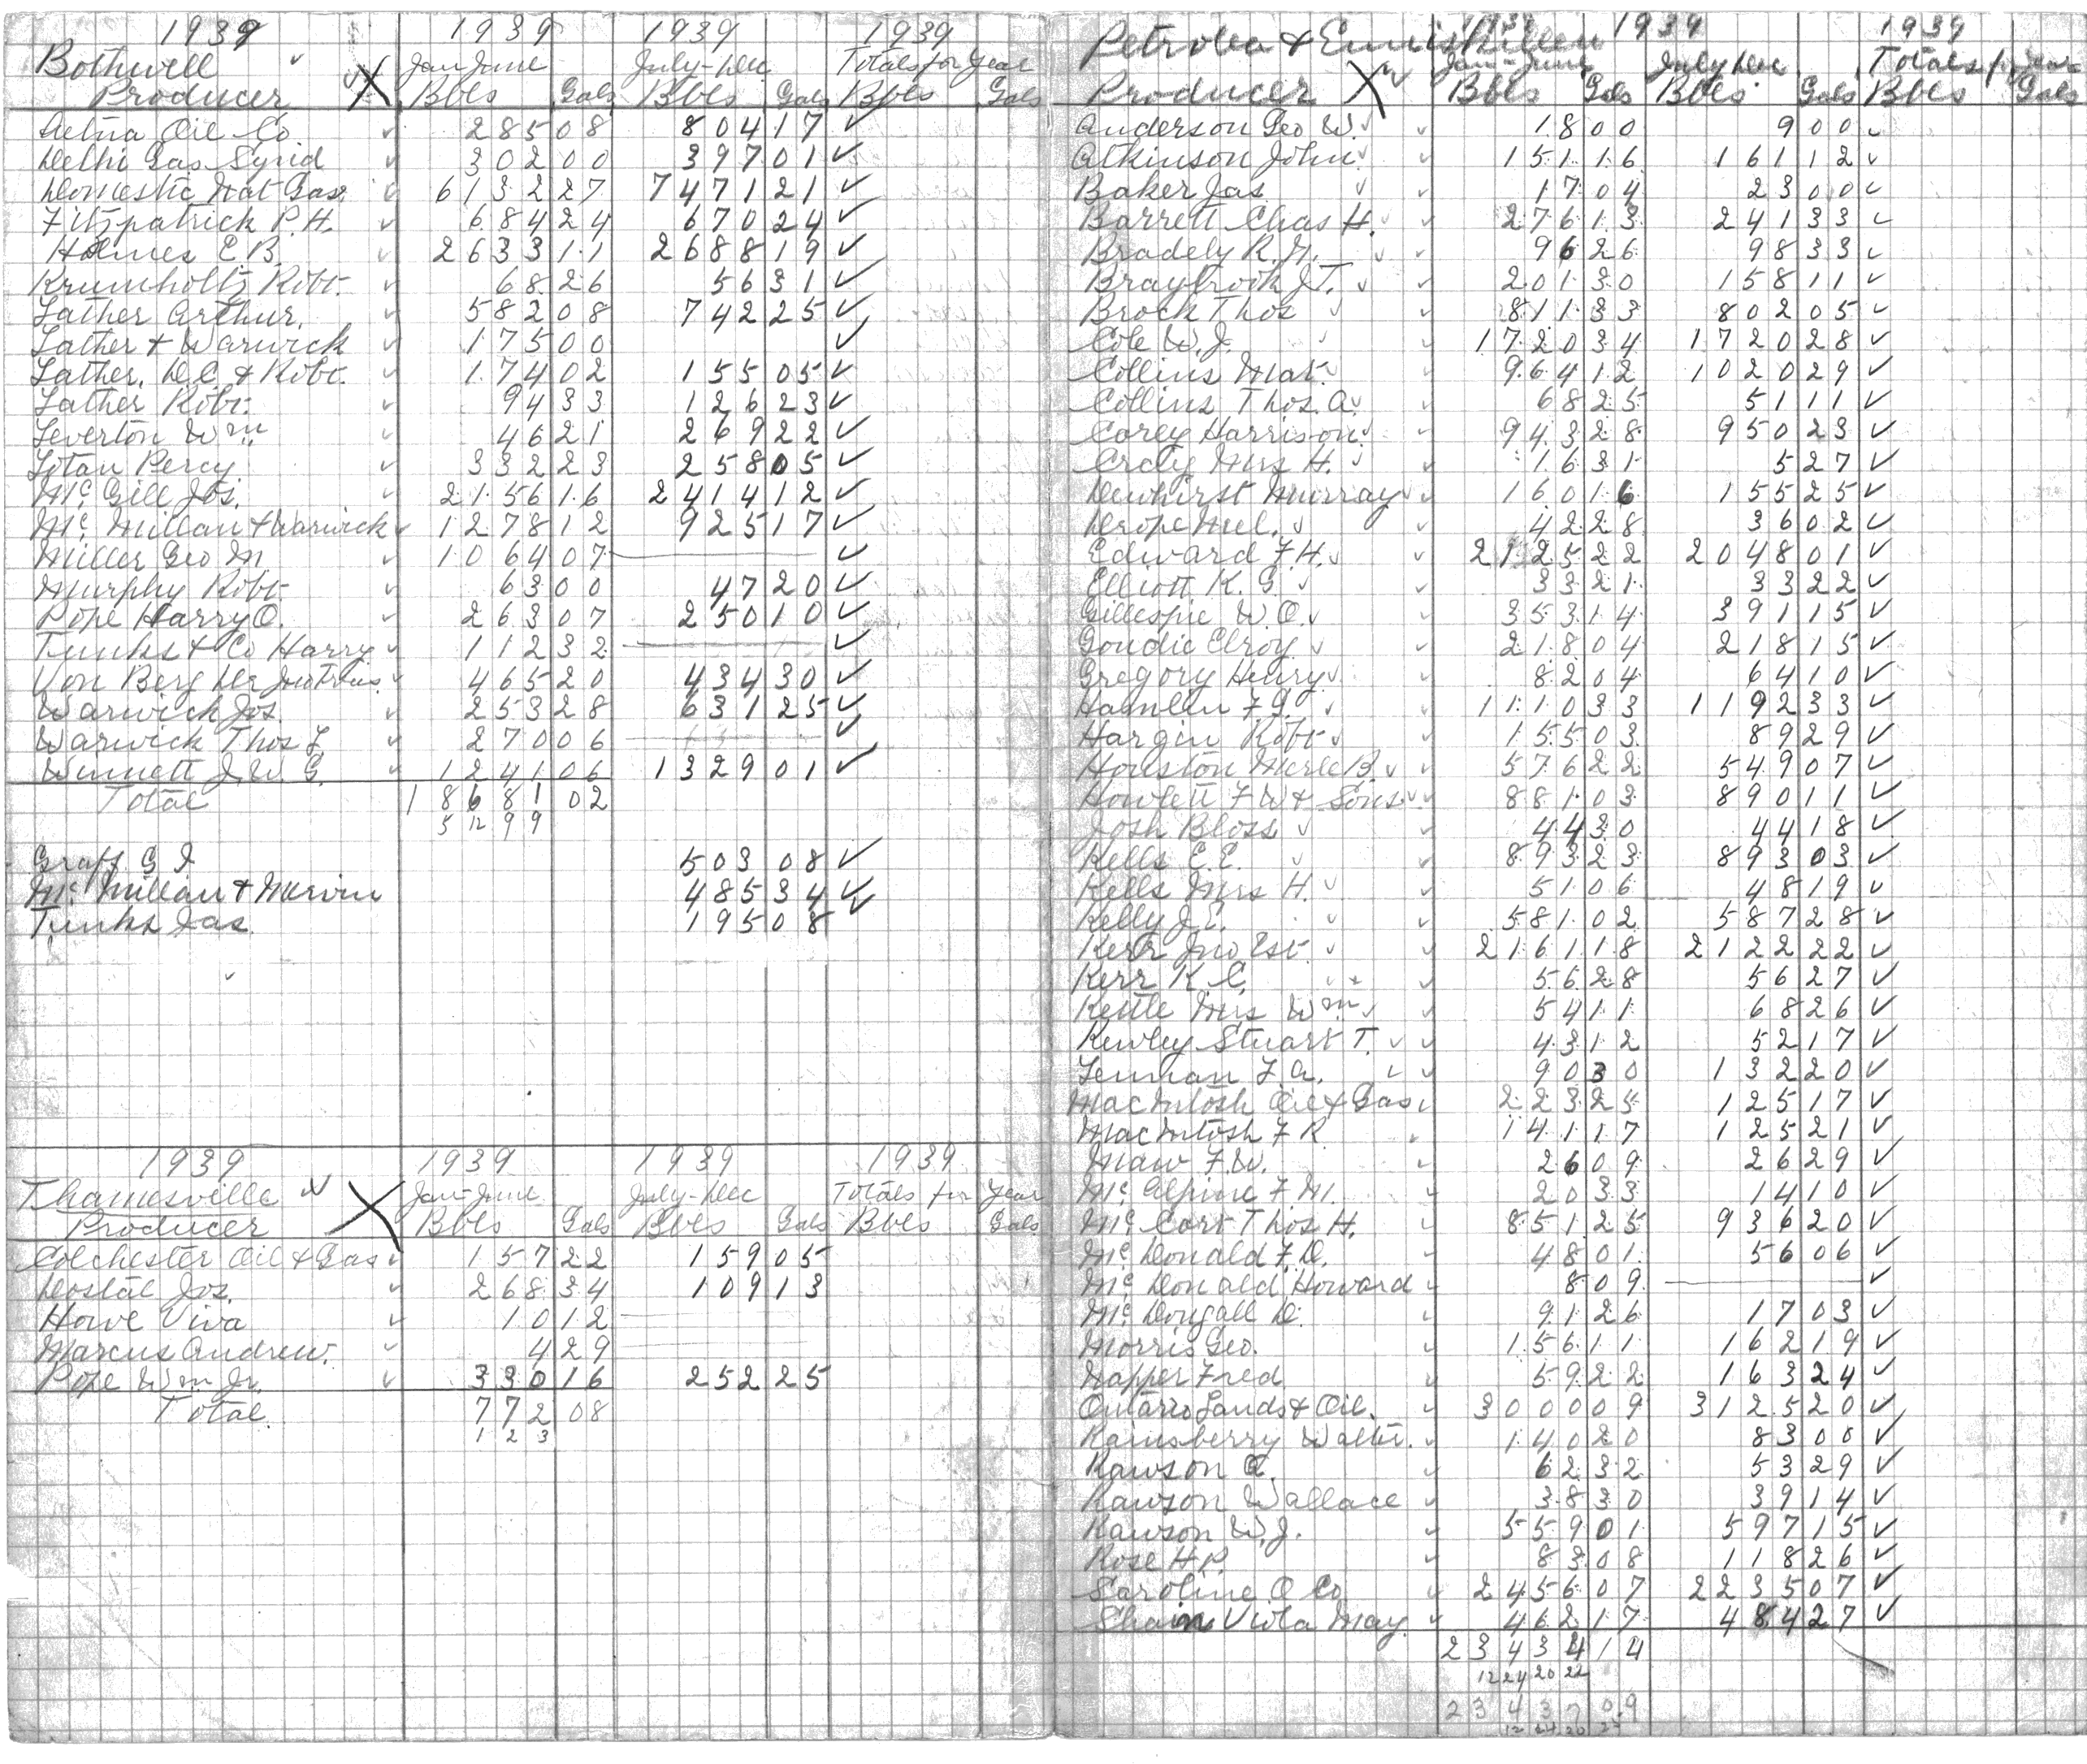 1939 1939 1939 1939
Bothwell Jan-June July-Dec Totals for Year
Producer X Bbls Gals Bbls Gals Bbls Gals
Aetna Oil Co ✓ 285 08 804 17 ✓
Delhi Gas Synd ✓ 302 00 397 01 ✓
Domestic Nat Gas ✓ 6132 27 7471 21 ✓
Fitzpatrick P.H. ✓ 684 24 670 24 ✓
Holmes E B. ✓ 2633 11 2688 19 ✓
Krumholtz Robt. ✓ 68 26 56 31 ✓
Lather Arthur. ✓ 582 08 742 25 ✓
Lather & Warwick ✓ 175 00 ✓
Lather, D.C. & Robt. ✓ 174 02 155 05 ✓
Lather Robt. ✓ 94 33 126 23 ✓
Leverton Wm ✓ 46 21 269 22 ✓
Lotan Percy ✓ 332 23 258 05 ✓
Mc Gill Jos. ✓ 2156 16 2414 12 ✓
Mc Millan & Warwick ✓ 1278 12 925 17 ✓
Miller Geo M ✓ 1064 07 ✓
Murphy Robt ✓ 63 00 47 20 ✓
Pope Harry O. ✓ 263 07 250 10 ✓
Tunks & Co Harry ✓ 112 32 ✓
Von Berg De ✓ 465 20 434 30 ✓
Warwick Jos. ✓ 253 28 631 25 ✓
Warwick Thos L. ✓ 270 06 ✓
Winnett J. W. G. ✓ 1241 06 1329 01 ✓
Total 18681 02
5 12 9 9
Graff G I 503 08 ✓
Mc Millan & Mervin 485 34 ✓
Tunks Jas 195 08 ✓
1939 1939 1939 1939
Thamesville Jan-June July-Dec Totals for Year
Producer X Bbls Gals Bbls Gals Bbls Gals
Colchester Oil & Gas ✓ 157 22 159 05
Dostal Jos. ✓ 268 34 109 13
Howe Viva ✓ 10 12
Marcus Andrew. ✓ 4 29
Pope Wm Jr. ✓ 330 16 252 25
Total. 772 08
1 2 3
Petrolea & Enniskillen 1939 1939 1939
Jan-June July Dec Totals for Year
Producer X Bbls Gals Bbls Gals Bbls Gals
Anderson Geo W. ✓ 18 00 9 00 ✓
Atkinson John ✓ 151 16 161 12 ✓
Baker Jas ✓ 17 04 23 00 ✓
Barrett Chas H. ✓ 276 13 241 33 ✓
Bradely R.G. ✓ 96 26 98 33 ✓
Braybrook J.T. ✓ 201 30 158 11 ✓
Brock Thos ✓ 811 33 802 05 ✓
Cole W.J. ✓ 1720 34 1720 28 ✓
Collins Mat. ✓ 964 12 1020 29 ✓
Collins Thos. A. ✓ 68 25 51 11 ✓
Corey Harrison ✓ 943 28 950 23 ✓
Craly Mrs H. ✓ 16 31 5 27 ✓
Dewhirst Murray ✓ 160 16 155 25 ✓
Drope Mel. ✓ 42 28 36 02 ✓
Edward F.H. ✓ 2125 22 2048 01 ✓
Elliott K. G. ✓ 33 21 33 22 ✓
Gillespie W.O. ✓ 353 14 391 15 ✓
Goudie Elroy ✓ 218 04 218 15 ✓
Gregory Henry ✓ 82 04 64 10 ✓
Hamlen F.G. ✓ 1110 33 1192 33 ✓
Hargin Robt ✓ 155 03 89 29 ✓
Houston Merle B. ✓ 576 22 549 07 ✓
Howlett F W & Sons ✓ 881 03 890 11 ✓
Josh Bloss ✓ 44 30 44 18 ✓
Kells E.E. ✓ 893 23 893 03 ✓
Kells Mrs H. ✓ 51 06 48 19 ✓
Kelly J.E. ✓ 581 02 587 28 ✓
Kerr Jno Est. ✓ 2161 18 2122 22 ✓
Kerr K C. ✓ 56 28 56 27 ✓
Kettle Mrs Wm ✓ 54 11 68 26 ✓
Kewley Stuart T. ✓ 43 12 52 17 ✓
Leunan F.A. ✓ 90 30 132 20 ✓
MacIntosh Oil & Gas ✓ 223 25 125 17 ✓
MacIntosh F R ✓ 141 17 125 21 ✓
Maw F.W. ✓ 26 09 26 29 ✓
Mc Alpine F M. ✓ 20 33 14 10 ✓
Mc Cort Thos H. ✓ 851 25 936 20 ✓
Mc Donald F.D. ✓ 48 01 56 06 ✓
Mc Donald Howard ✓ 8 09 ✓
Mc Dougall D. ✓ 91 26 17 03 ✓
Morris Geo. ✓ 156 11 162 19 ✓
Napper Fred ✓ 59 22 163 24 ✓
Ontario Lands & Oil. ✓ 3000 09 3125 20 ✓
Ramsberry Walter. ✓ 140 20 83 00 ✓
Rawson A. ✓ 62 32 53 29 ✓
Rawson Wallace ✓ 38 30 39 14 ✓
Rawson W.J. ✓ 559 01 597 15 ✓
Rose H P. ✓ 83 08 118 26 ✓
Saroline O Co ✓ 2456 07 2235 07 ✓
Shain Viola May. ✓ 462 17 484 27 ✓
23434 14
12 24 20 22
23437 09
12 24 20 2